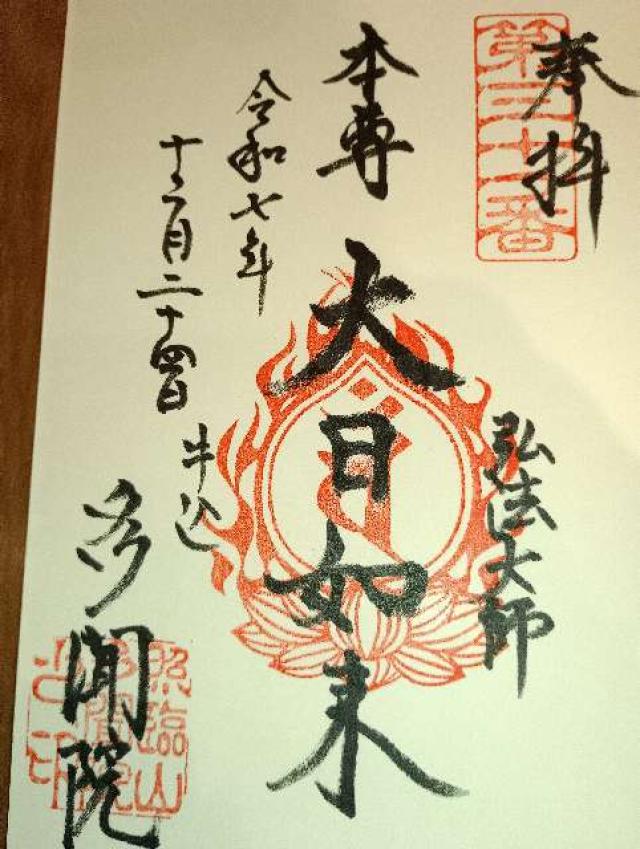 奉拝
第三十一番
弘法大師
本尊
大日如来
令和七年
十二月二十四日
牛込
多聞院
照臨山
多聞院
之印